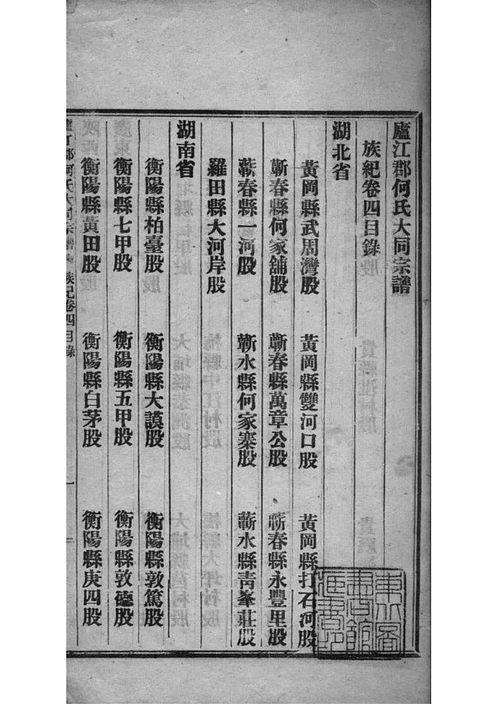 廬江郡何氏大同宗譜
族紀卷四目錄
湖北省
黃岡縣武周灣股 黃岡縣雙河口股 黃岡縣打石河股
蘄春縣何家舖股 蘄春縣萬章公股 蘄春縣永豐里股
蘄春縣一河股 蘄水縣何家寨股 蘄水縣青峯莊股
羅田縣大河岸股
湖南省
衡陽縣柏臺股 衡陽縣大謨股 衡陽縣敦篤股
衡陽縣七甲股 衡陽縣五甲股 衡陽縣敦德股
衡陽縣黃田股 衡陽縣白茅股 衡陽縣庚四股
廬江郡何氏大同宗譜 族紀卷四目錄 一